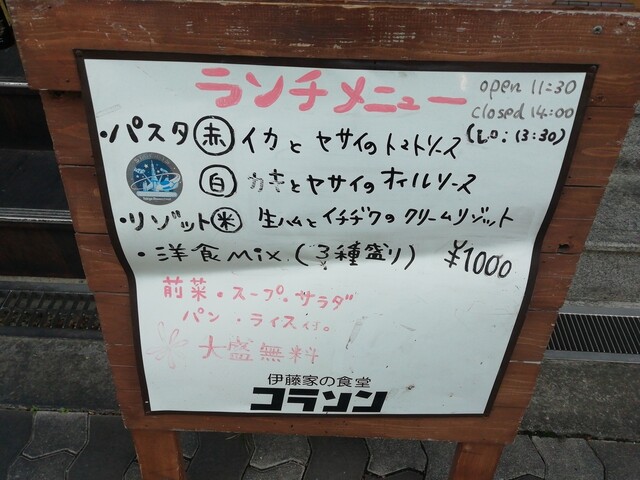 ランチメニュー
open 11:30
closed 14:00
(L.O: 13:30)
・パスタ 赤 イカとヤサイのトマトソース
白 カキとヤサイのオイルソース
・リゾット 米 生ハムとイチヂクのクリームリゾット
・洋食mix (3種盛り) ¥1000
前菜・スープ・サラダ
パン・ライス
大盛無料
伊藤家の食堂
コラソン